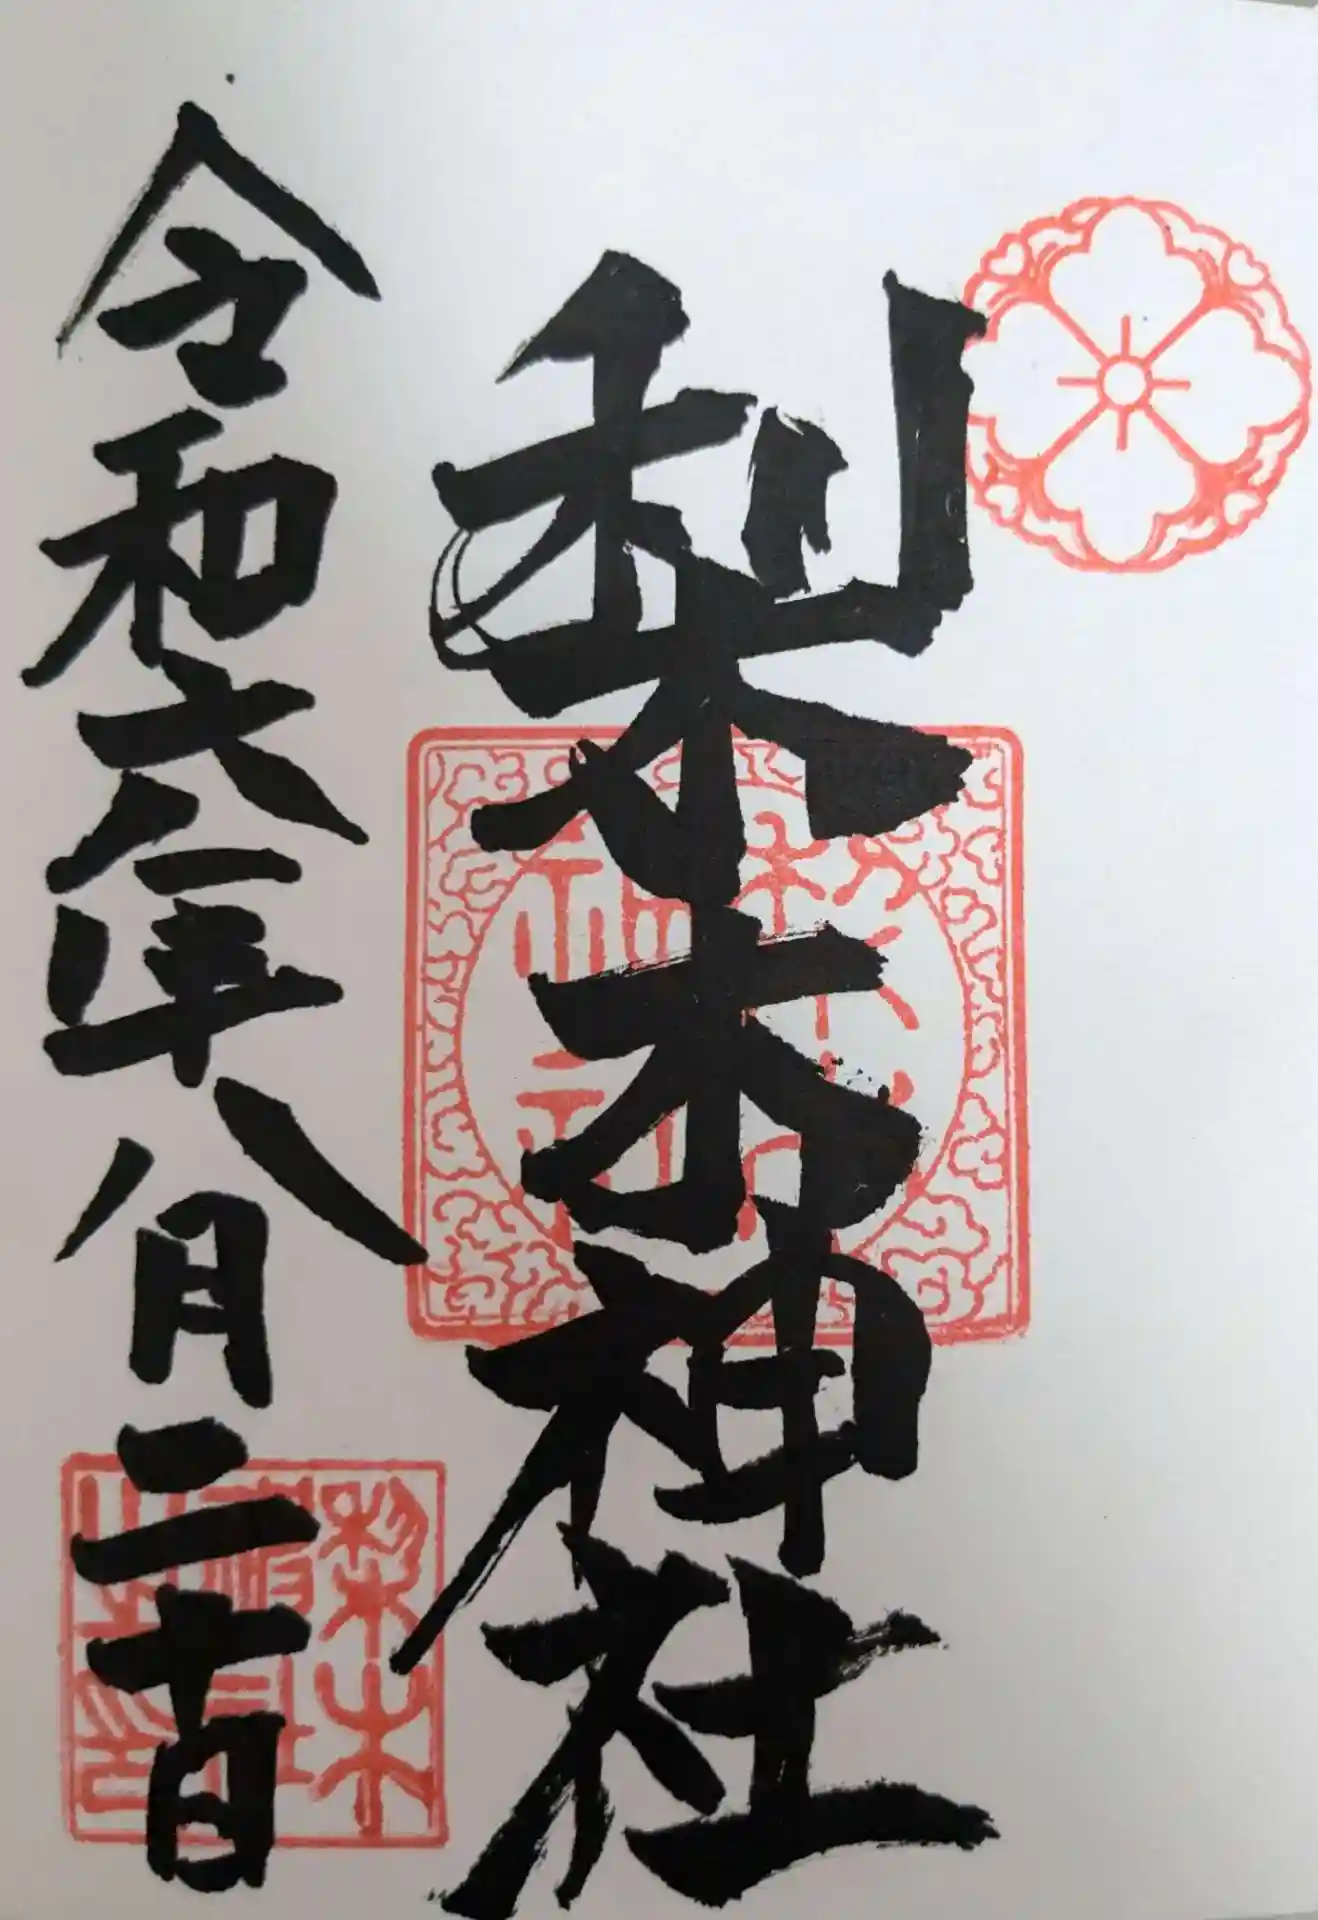 梨木神社
令和六年八月二十日